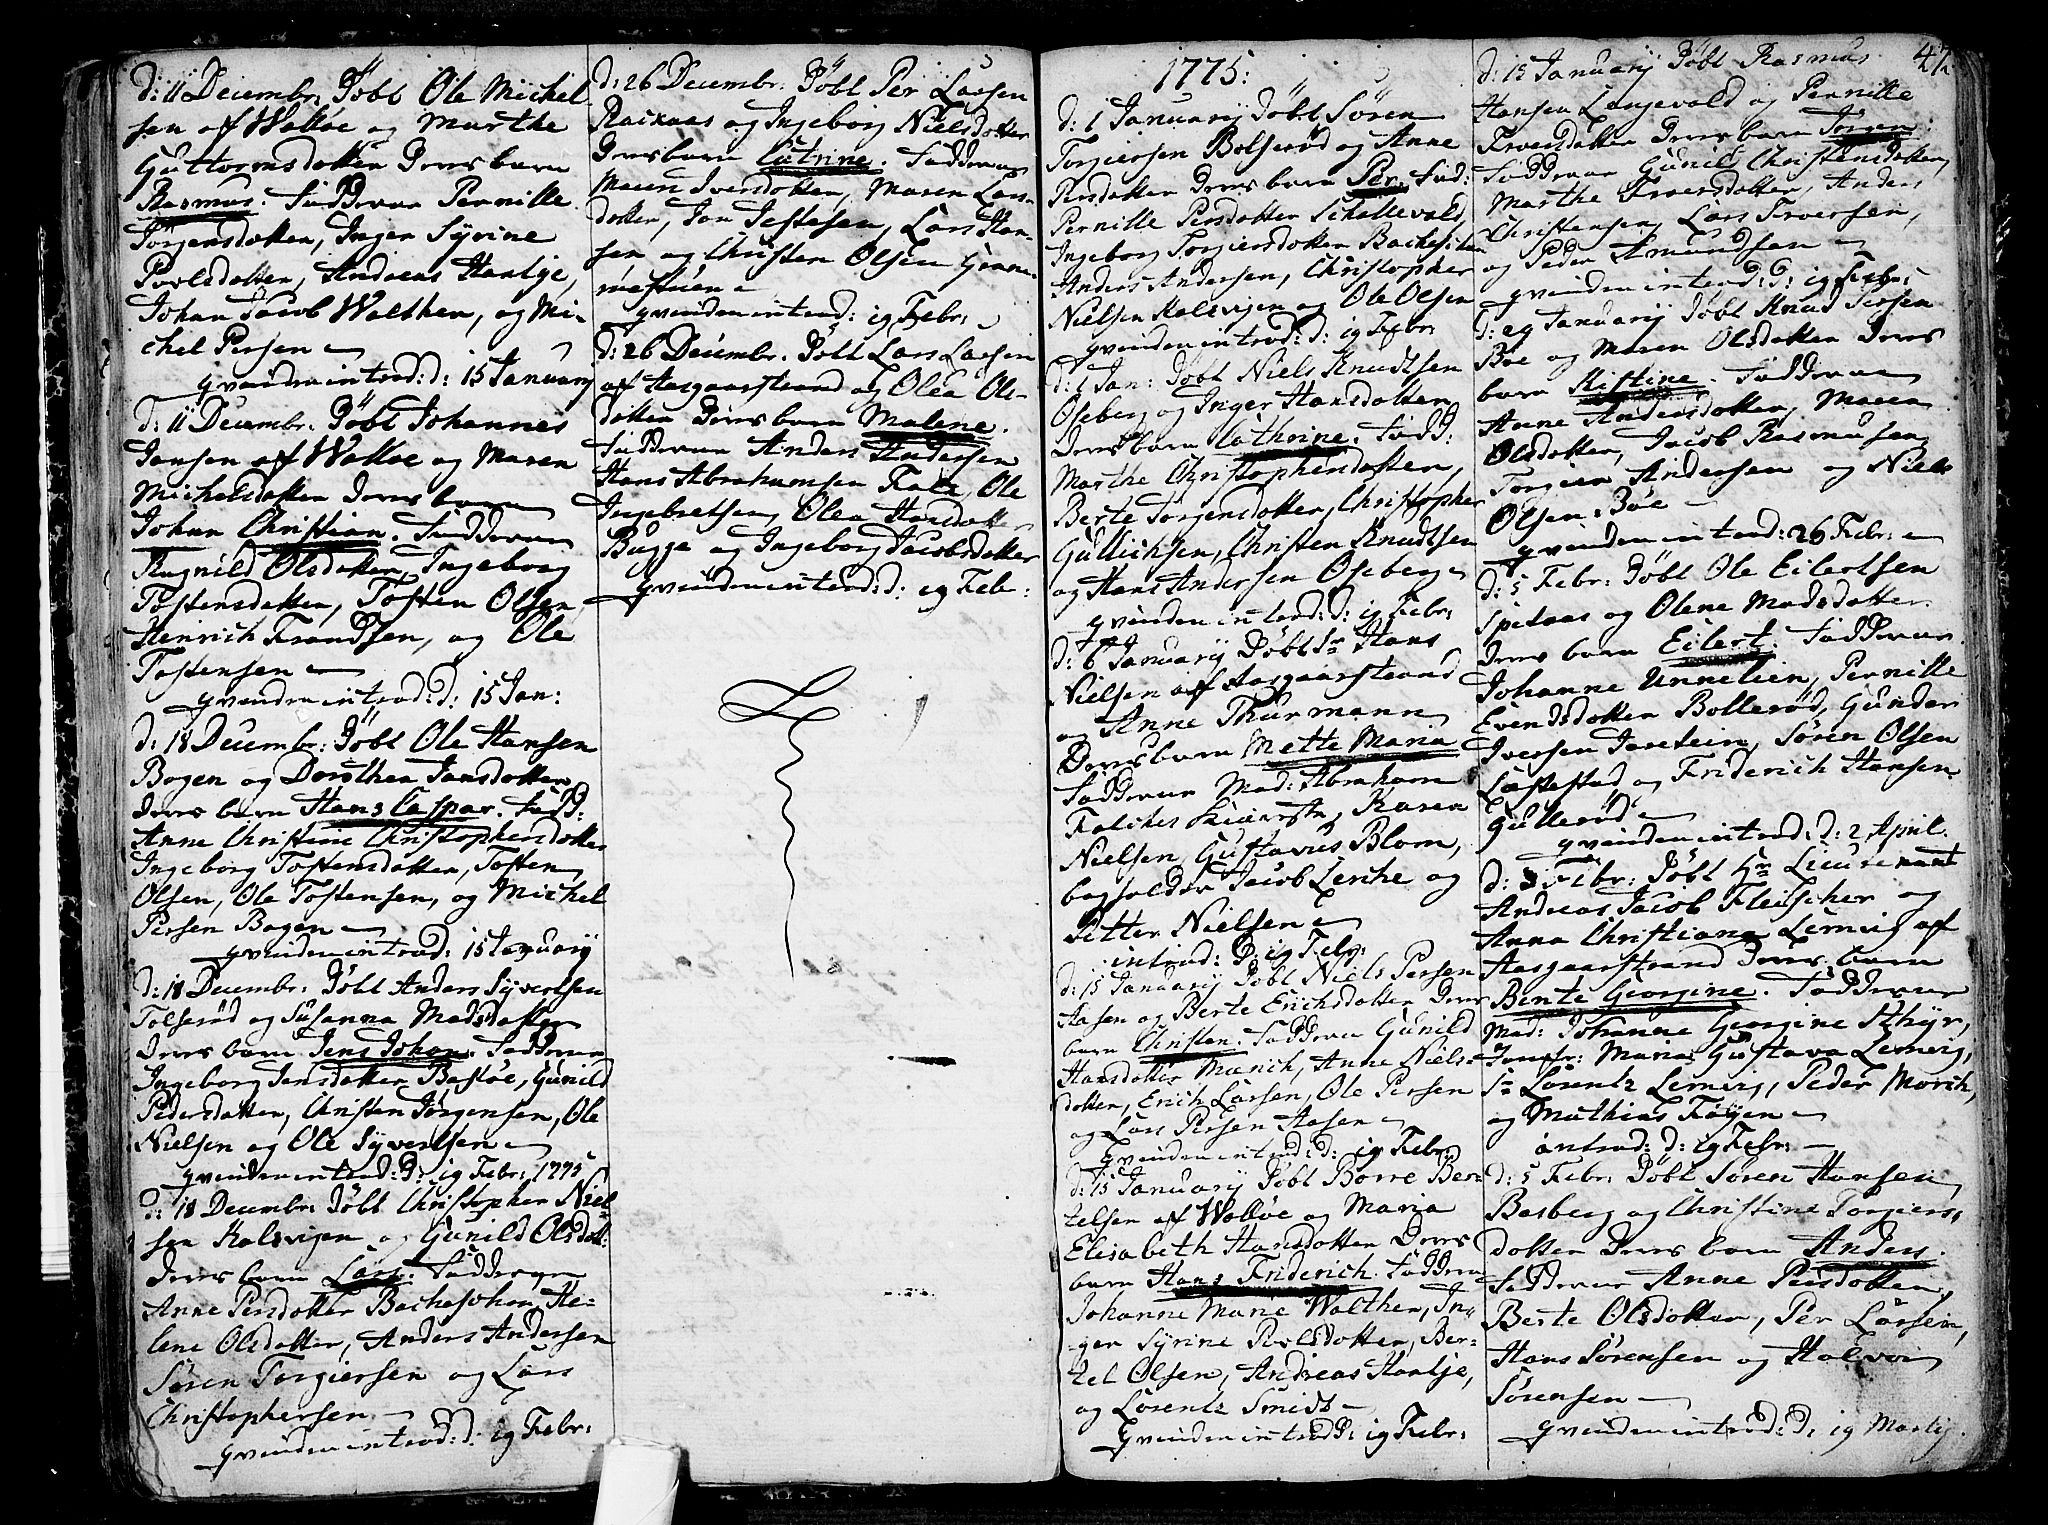 d: 11 Decembr: Döbt Ole Michel-
sen aff Walløe og Marthe
Guttormsdotter Deres barn
Rasmus. Fadderne Pernille
Jörgensdotter, Inger Syrine
Povlsdotter, Andreas Hantje,
Johan Jacob Walther, og Mi-
chel Persen
qvinden introd: d: 15 January
d: 11 Decembr: Döbt Johannes
Jansen aff Walløe og Maren
Michelsdotter Deres barn
Johan Christian. Fadderne
Ragnild Olsdotter, Ingeborg
Tostensdotter, Tosten Olsen,
Heinrich Frandsen, og Ole
Tostensen
qvinden introd: d: 15 Jan:
d: 18 Decembr: Döbt Ole Hansen
Bogen og Dorothea Jansdotter
Deres barn Hans Caspar. Fadd:
Anne Christine Christophersdotter
Ingeborg Tostensdotter, Tosten
Olsen, Ole Tostensen, og Michel
Persen Bogen
qvinden introd: 15 January
d: 18 Decembr: Döbt Anders Syvertsen
Tolserød og Susanna Madsdotter
Deres barn Jens Johan. Fadderne
Ingeborg Jensdotter Bastøe, Gunild
Pedersdotter, Christen Jørgensen, Ole
Nielsen og Ole Syvertsen
qvinden introd: d: 19 Febr: 1775
d: 18 Decembr: Döbt Christopher Niel-
sen Kalsvigen og Gunild Olsdott:
Deres barn Lars. Fadderne
Anne Persdotter Bacheshon, He-
lene Olsdotter, Anders Andersen
Søren Torgiersen og Lars
Christophersen
qvinden introd: d: 19 Febr:
d: 26 Decembr: Döbt Per Larsen
Raskaas og Ingeborg Nielsdotter
Deres barn Catrine. Fadderne
Maren Iversdotter, Maren Lars-
dotter, Jan Jestesen, Lars Han-
sen og Christen Olsen
qvinden introd: 19 Febr:
d: 26 Decembr: Döbt Lars Larsen
aff Aasgaarstrand og Olea Ols-
dotter Deres barn Malene.
Fadderne Anders Andersen
Hans Abrahamsen Falck, Ole
Ingebretsen, Olea Hansdotter
Bugge og Ingeborg Jacobsdotter
qvinden introd: d: 19 Febr:
1775:
d: 1 January Döbt Søren
Torgiersen Bolserød og Anne
Persdotter Deres barn Per. Fad:
Pernille Persdotter Schallevold,
Ingeborg Torgiersdotter Backeshon
Anders Andersen, Christopher
Nielsen Kalsvigen og Ole Olsen
qvinden introd: d: 19 Febr:
d: 1 Jan: Döbt Niels Knudtsen
Oseberg og Inger Hansdotter
Deres barn Cathrine. Fadd:
Marthe Christophersdotter,
Berte Jørgensdotter, Christopher
Gullichsen, Christen Knudtsen
og Hans Andersen Oseberg
qvinden introd: d: 19 Febr:
d: 6 January Döbt Sr Hans
Nielsen aff Aasgaarstrand
og Anne Thurmann
Deres barn Mette Maria
Fadderne Mad: Abraham
Falches Kiæreste, Karen
Nielsen, Gustavus Blom,
bogholder Jacob Lerche og
Petter Nielsen
introd: d: 19 Febr:
d: 15 January Döbt Niels Persen
Aasen og Berte Erichsdotter Deres
barn Christen. Fadderne Gunild
Hansdotter Munch, Anne Niels-
dotter, Erich Larsen, Ole Persen
og Lars Persen Aasen
qvinden introd: d: 19 Febr:
d: 15 January Döbt Borre Ber-
telsen aff Walløe og Maria
Elisabeth Hansdotter Deres
barn Hans Friderich. Fadderne
Johanne Marie Walther, In-
ger Syrine Povlsdotter, Ber-
tel Olsen, Andreas Hantje,
og Lorentz Smidt
qvinden introd: d: 19 Febr:
47
d: 15 January Döbt Rasmus
Hansen Langevold og Pernille
Fraersdotter Deres barn Jørgen
Fadderne Gunild Christensdotter,
Marthe Fraersdotter, Anders
Christensen, Lars Fraersen,
og Peder Amundsen
qvinden introd: d: 19 Febr:
d: 29 January Döbt Knud Persen
Bøe og Maren Olsdotter Deres
barn Kistine. Fadderne
Anne Andersdotter, Maren
Olsdotter, Jacob Rasmusen,
Torgier Andersen og Niels
Olsen Bøe
qvinden introd: 26 Febr:
d: 5 Febr: Döbt Ole Eilertsen
Spetaas og Olene Madsdotter.
Deres barn Eilert. Fadderne
Johanne Unnelien, Pernille
Evendsdotter Bollerød, Gunder
Iversen Jareteien, Søren Olsen
Læstestad og Friderich Hansen
Gullerød
qvinden introd: d: 2 April.
d: 5 Febr: Döbt Hr Lieutenant
Andreas Jacob Fleischer og
Anna Christiana Lemvig aff
Aasgaarstrand Deres barn
Bente Georgine. Fadderne
Mad: Johanne Georgine Sthyr,
Jomfr: Maria Gustava Lemvig,
Sr Lorentz Lemvig, Peder Morch,
og Mathias Føyen
introd: d: 19 Febr:
d: 5 Febr: Döbt Søren Hansen
Basberg og Christine Torgiers-
dotter Deres barn Anders.
Fadderne Anne Persdotter,
Berte Olsdotter, Per Larsen,
Hans Sørensen og Halvor
Sørensen
qvinden introd: d: 19 Marty.